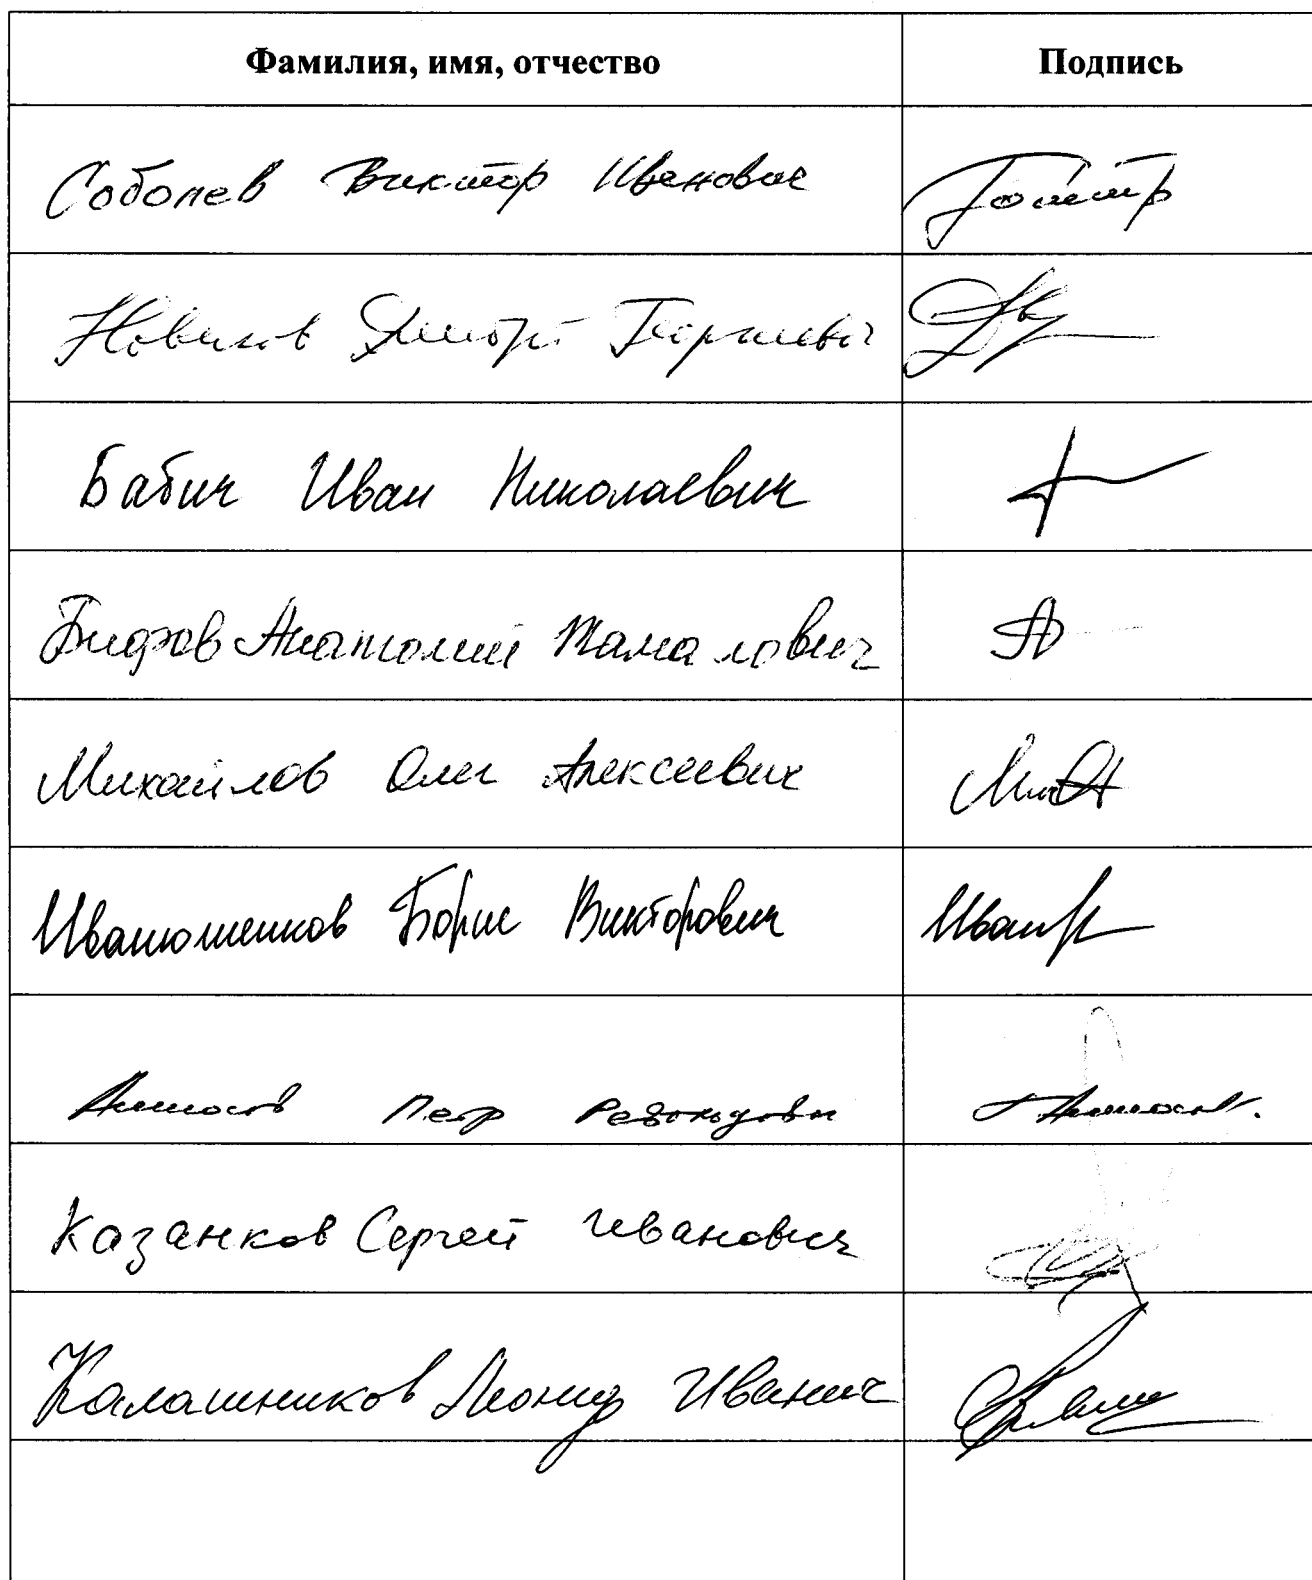 Фамилия, имя, отчество Подпись
Соболев Виктор Иванович
Новиков Дмитрий Георгиевич
Бабич Иван Николаевич
Бифов Анатолий Жамалович
Михайлов Олег Алексеевич
Иванюшенков Борис Викторович
Аммосов Петр Револьдович
Казанков Сергей Иванович
Калашников Леонид Иванич